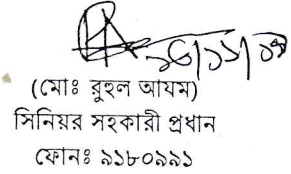 (মোঃ রুহুল আযম)
সিনিয়র সহকারী প্রধান
ফোনঃ ৯১৮০৯৯১